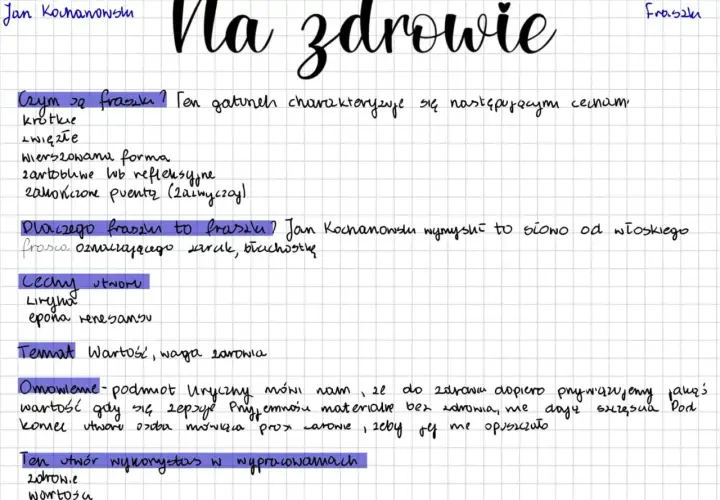 Jan Kochanowski
Na zdrowie
Fraszki
Czym są fraszki? Ten gatunek charakteryzuje się następującymi cechami:
krótkie
zwięzłe
wierszowana forma
żartobliwe lub refleksyjne
zakończone puentą (zazwyczaj)
Dlaczego fraszki to fraszki? Jan Kochanowski wymyślił to słowo od włoskiego
frasca oznaczającego żarcik, błachostkę
Cechy utworu
Liryka
epoka renesansu
Temat Wartość, waga zdrowia
Omówienie - podmiot liryczny mówi nam, że do zdrowia dopiero przywiązujemy jakąś
wartość gdy się zepsuje Przyjemności materialne bez zdrowia, nie dają szczęścia Pod
koniec utworu osoba mówiąca prosi zdrowie, żeby jej nie opuszczało
Ten utwór wykorzystasz w wypracowaniach
zdrowie
wartości